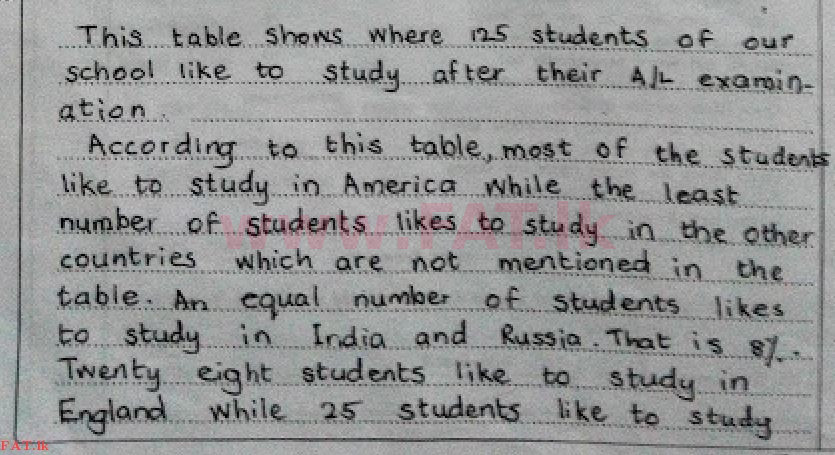 This table shows where 125 students of our
school like to study after their A/L examin-
ation.
According to this table, most of the students
like to study in America while the least
number of students likes to study in the other
countries which are not mentioned in the
table. An equal number of students likes
to study in India and Russia. That is 8%.
Twenty eight students like to study in
England while 25 students like to study
www.FAT.lk
FAT.lk